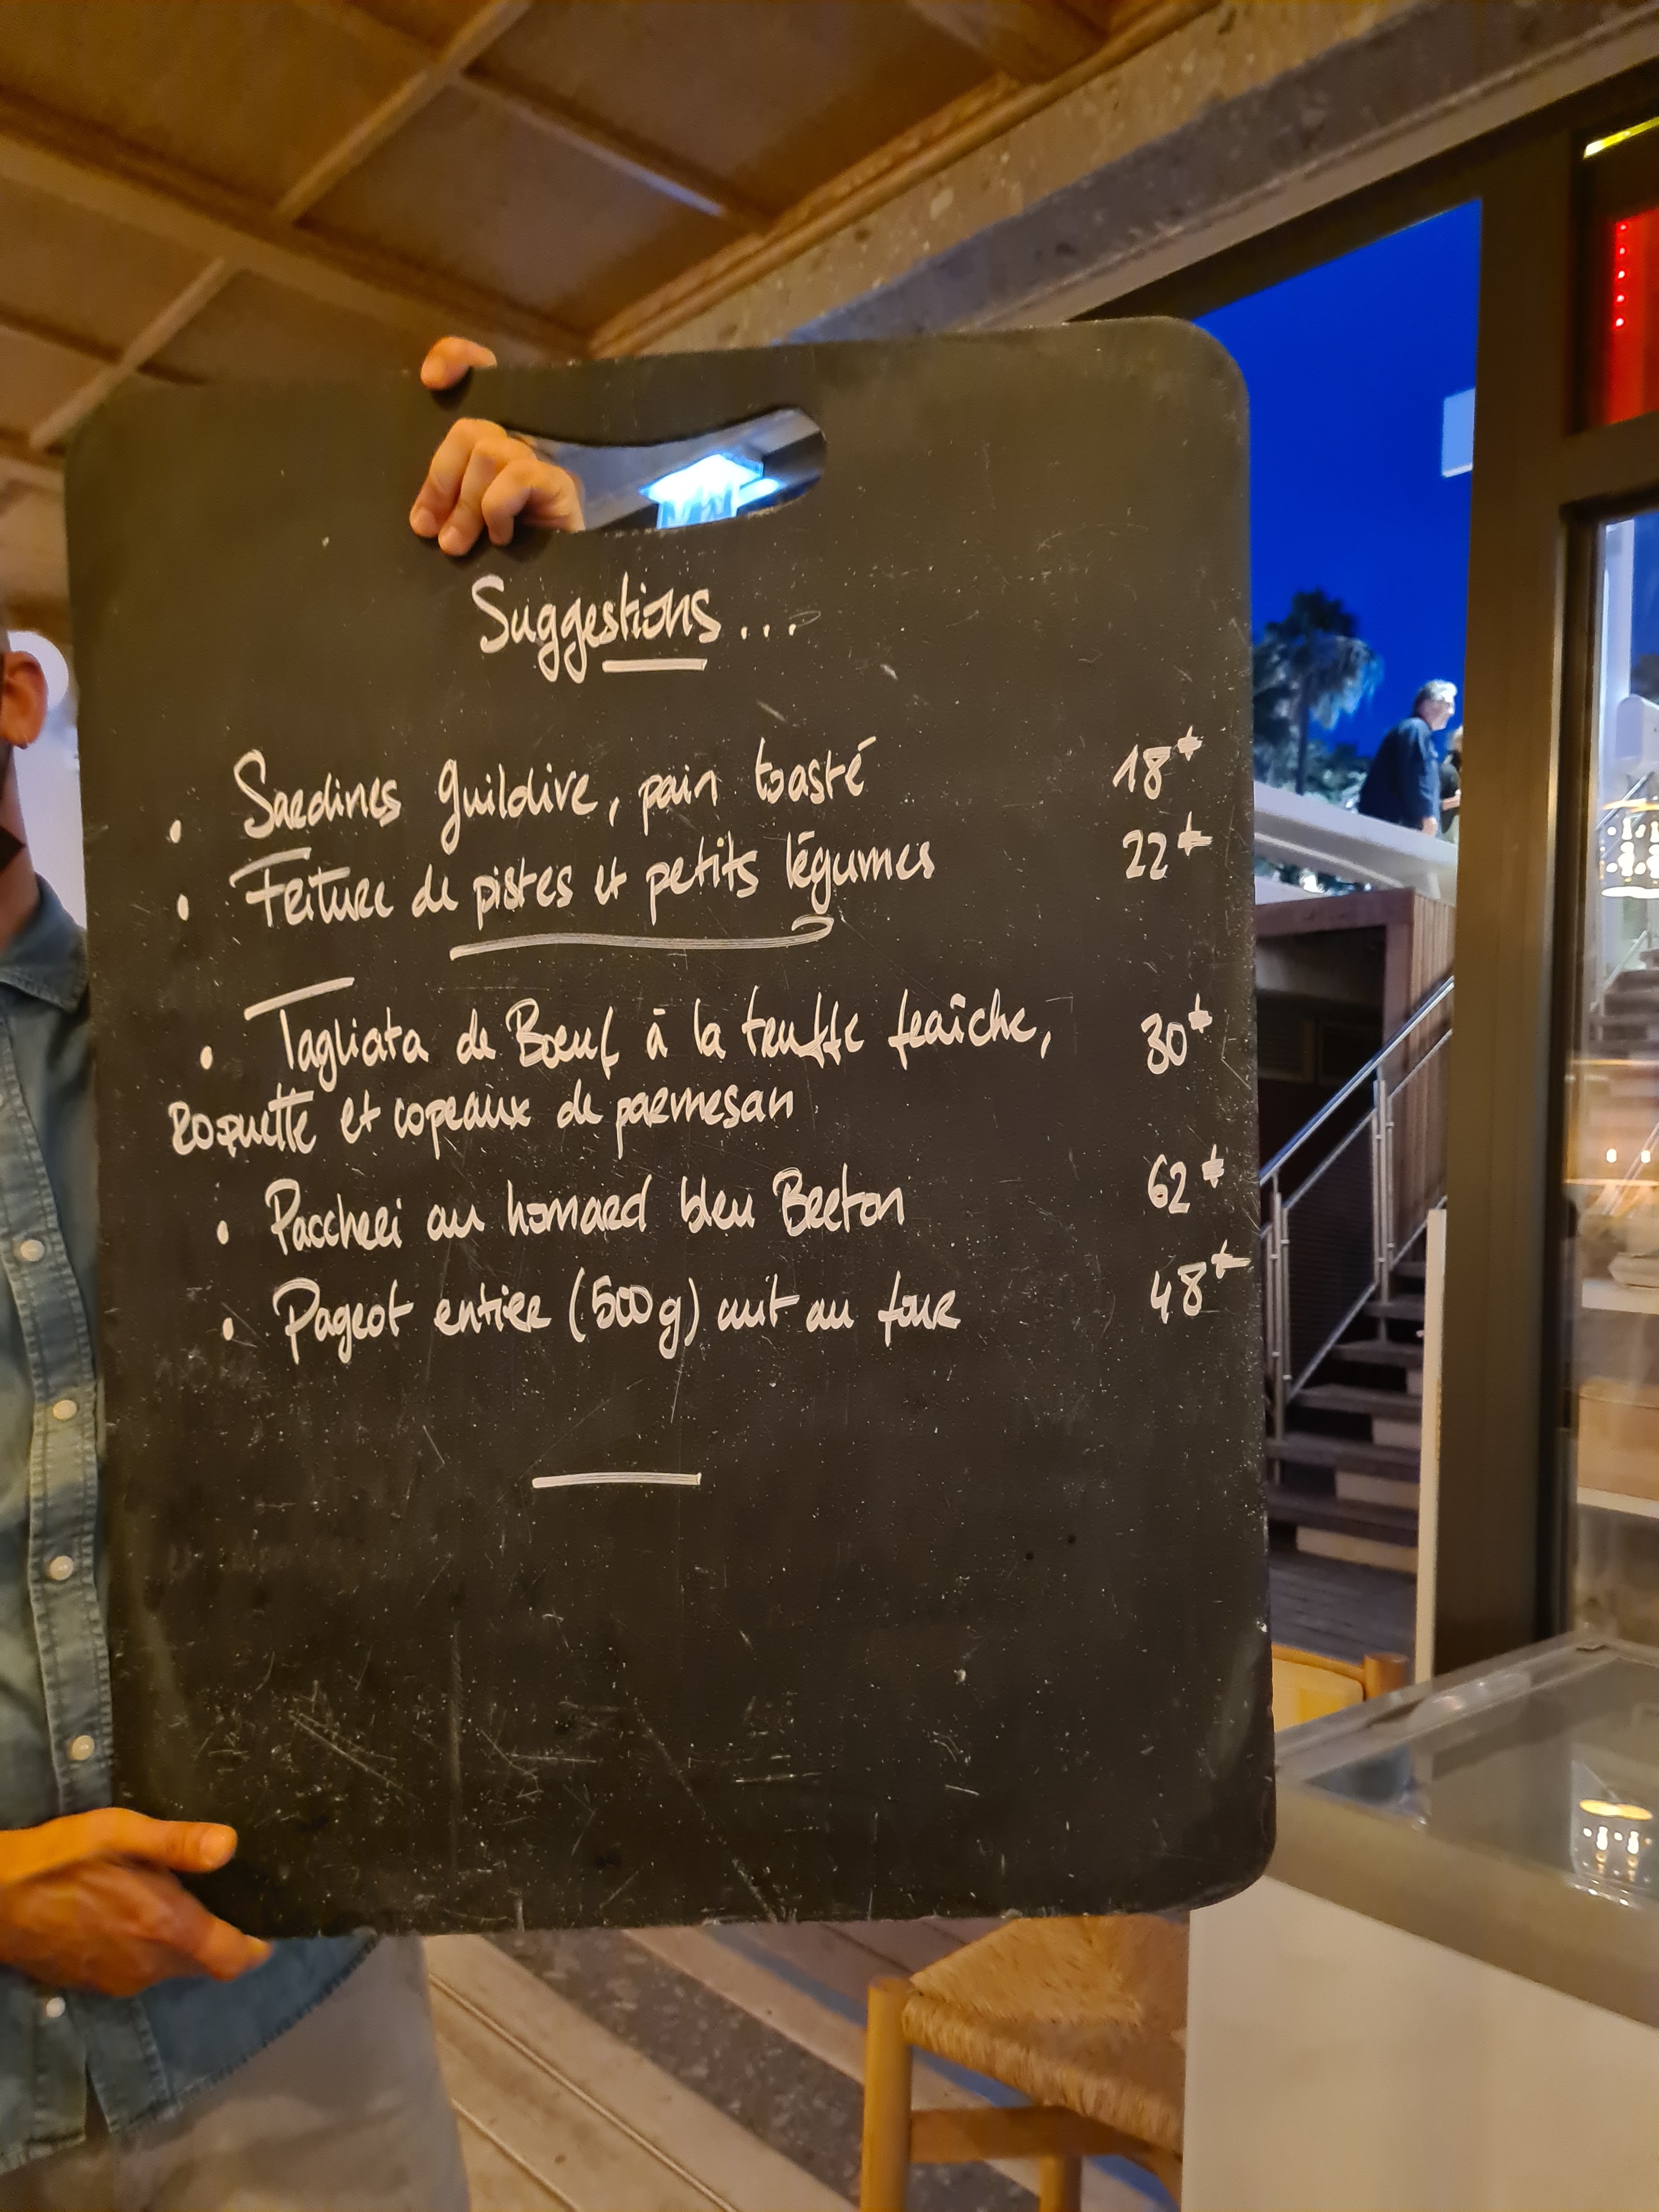 Suggestions...
• Sardines guildive, pain toasté 18€
• Friture de pistes et petits légumes 22€
• Tagliata de Bœuf à la truffe fraîche, 30€
Roquette et copeaux de parmesan
• Paccheri au homard bleu Breton 62€
• Pageot entier (500g) cuit au four 48€